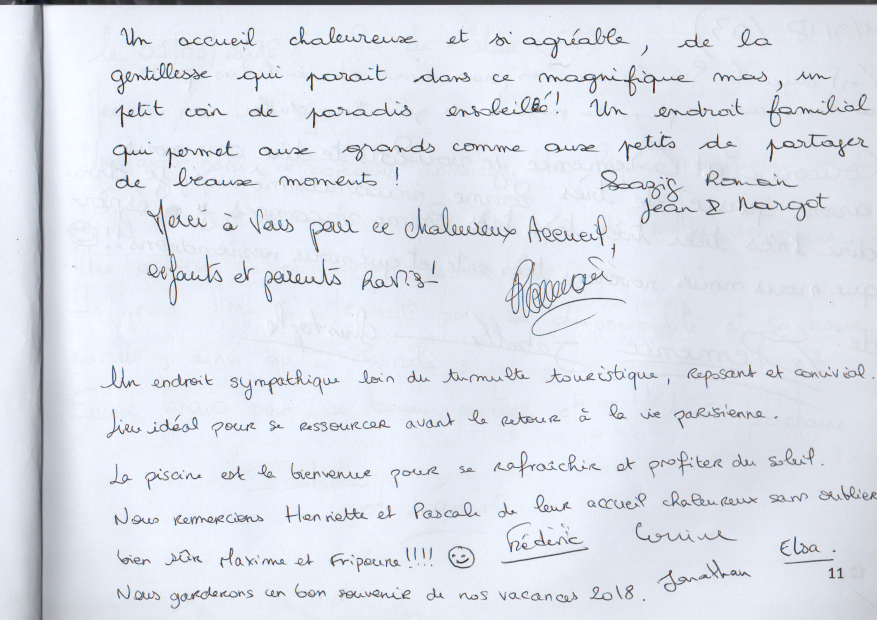 Un accueil chaleureux et si agréable, de la
gentillesse qui parait dans ce magnifique mas, un
petit coin de paradis ensoleillé! Un endroit familial
qui permet aux grands comme aux petits de partager
de beaux moments !
Soazig Romain
Jean & Margot
Merci à Vous pour ce chaleureux Accueil,
enfants et parents Ravis!
Un endroit sympathique loin du tumulte touristique, reposant et convivial.
Lieu idéal pour se ressourcer avant le retour à la vie parisienne.
La piscine est la bienvenue pour se rafraîchir et profiter du soleil.
Nous remercions Henriette et Pascale de leur accueil chaleureux sans oublier
bien sûr Maxime et Fripoune!!!! ☺ Frédéric Corinne Elsa.
Nous garderons un bon souvenir de nos vacances 2018. Jonathan
11